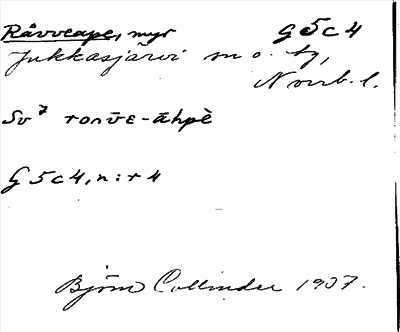 Råvveape, myr G5c4
Jukkasjärvi sn o. tg,
Norrb. l.
Sv⁷ ronv̄ε-āhpè
G5c4, n:r 4
Björn Collinder 1937.